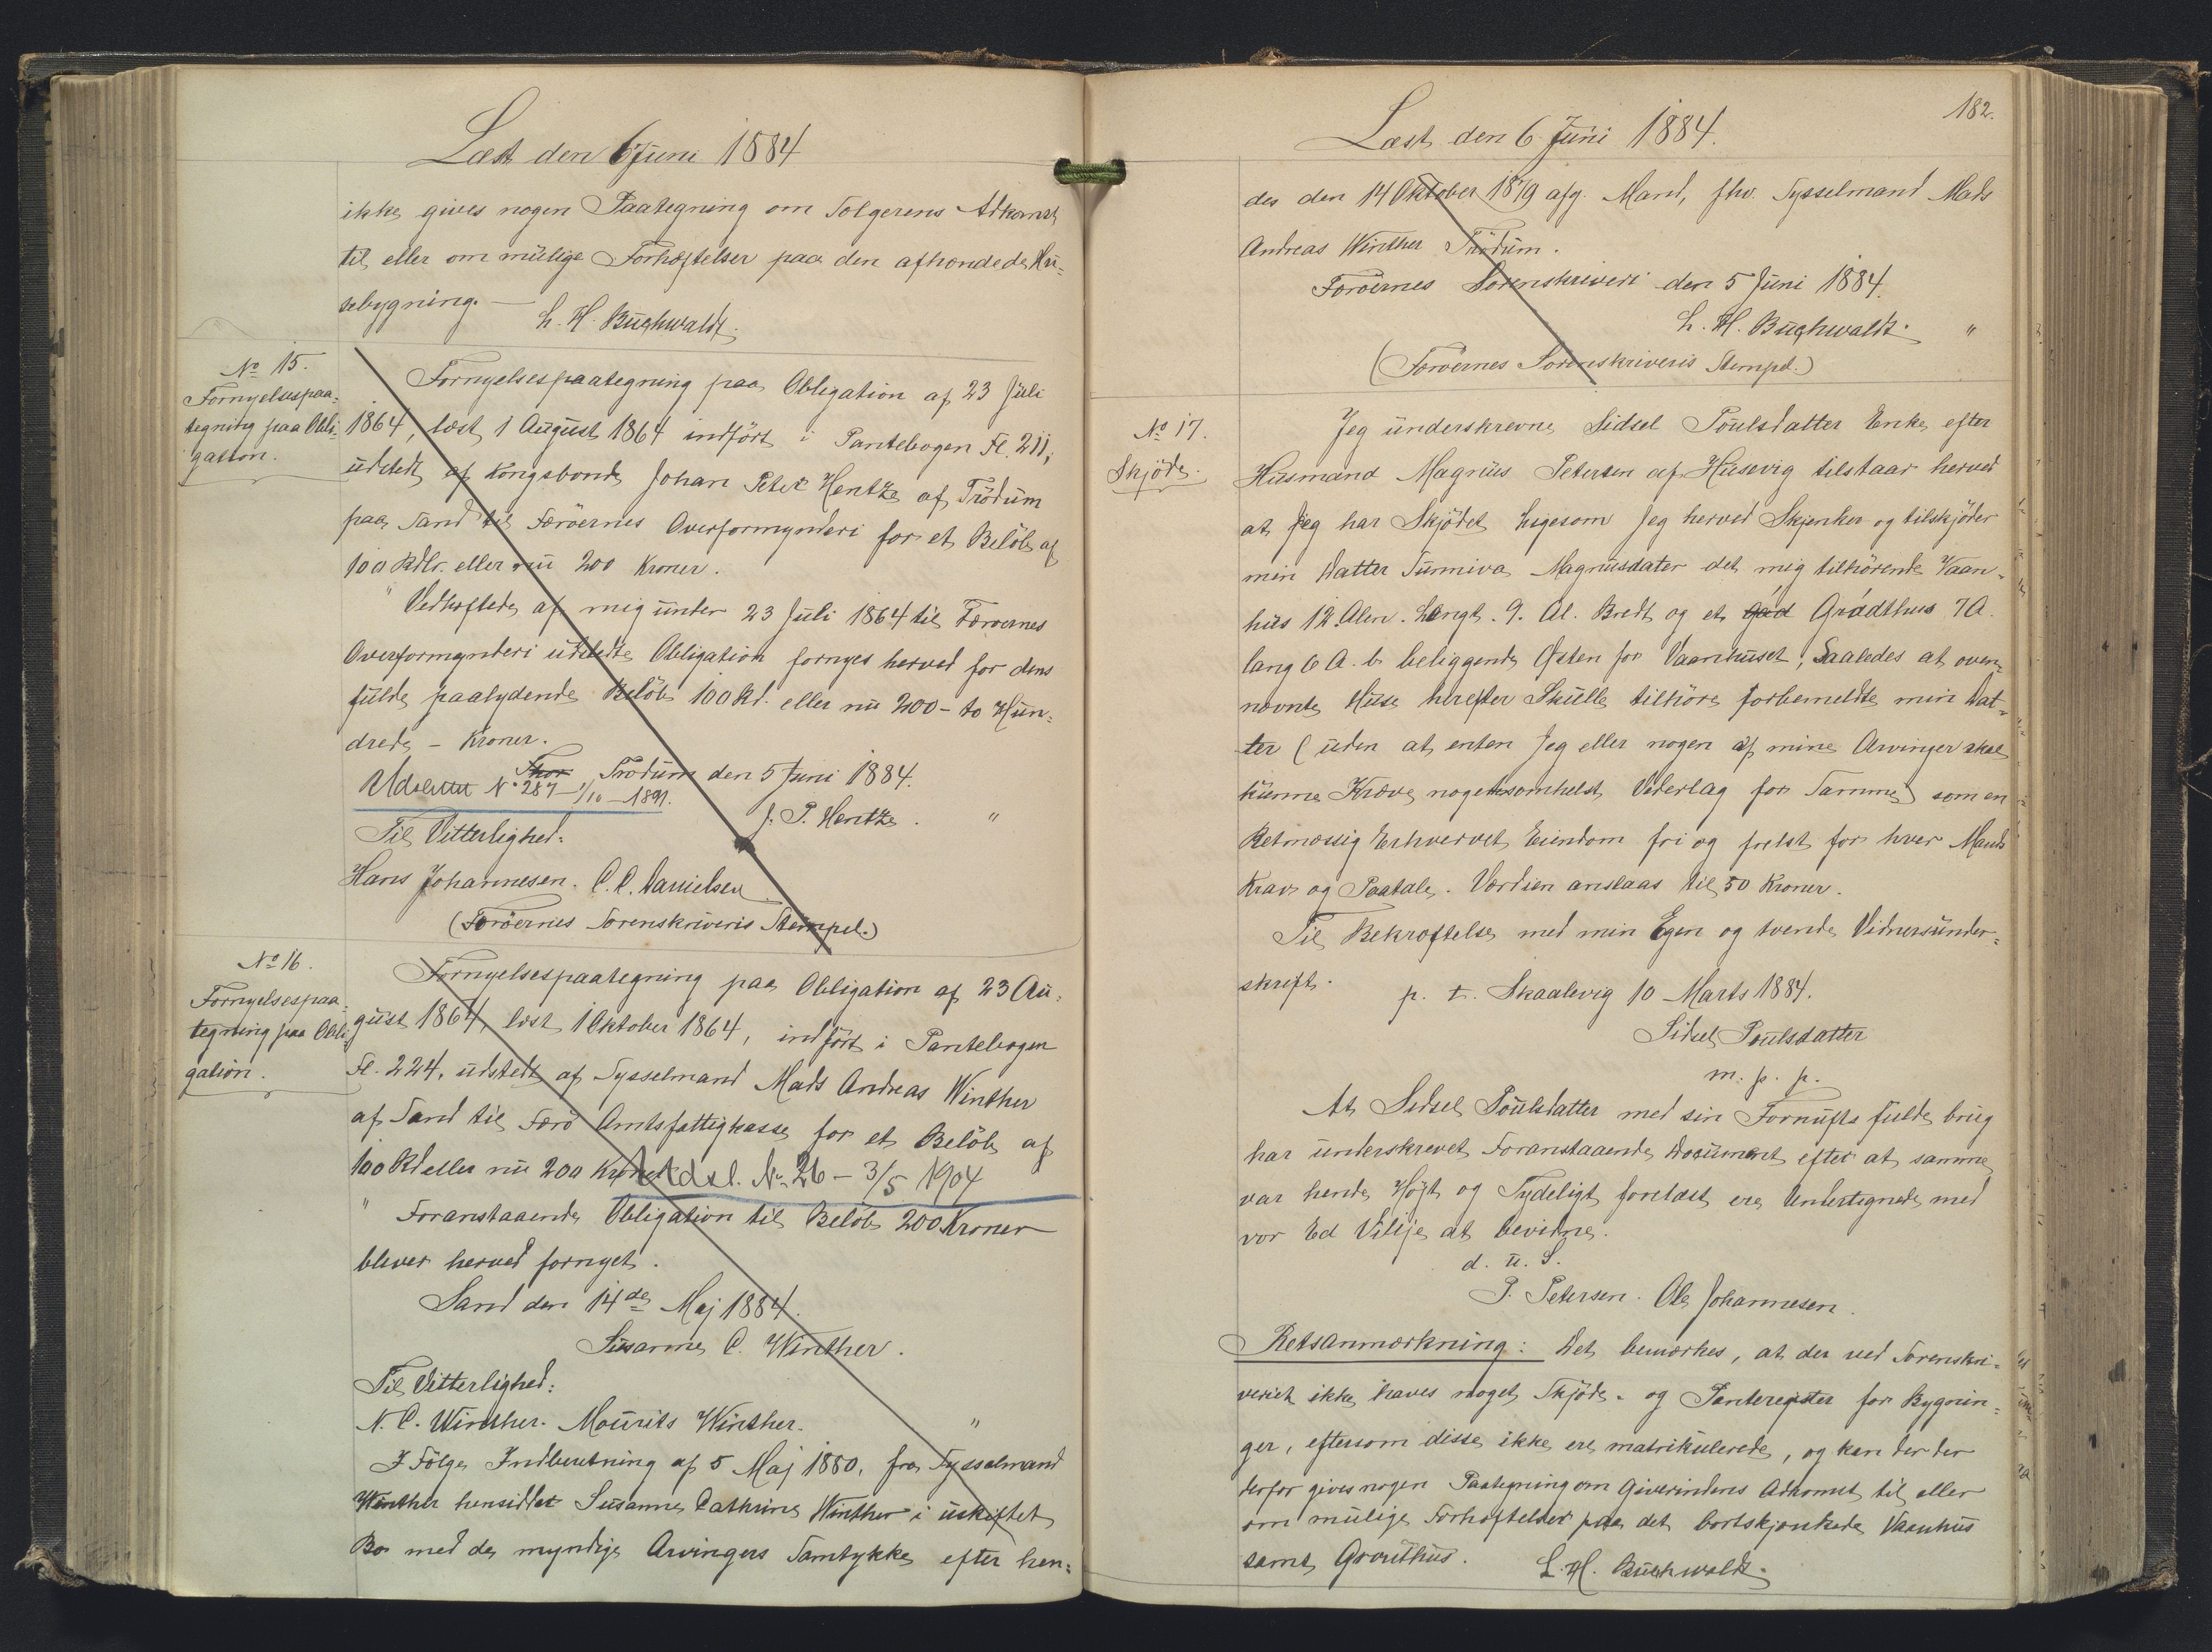 Læst den 6 Juni 1884
ikke gives nogen Paategning om Sælgerens Adkomst
til eller om mulige Forhæftelser paa den afhændede Hu-
sebygning. —
L. H. Buchwaldt.
No 15.
Fornyelsespaa-
tegning paa Obli-
gation.
Fornyelsespaategning paa Obligation af 23 Juli
1864, læst 1 August 1864 indført i Pantebogen Fl. 211,
udstedt af Kongsbonde Johan Peter Hentze af Trödum
paa Sand til Færöernes Overformynderi for et Belöb af
100 Rdlr. eller nu 200 Kroner.
" Vedhæftede af mig under 23 Juli 1864 til Færöernes
Overformynderi udstedte Obligation fornyes herved for dens
fulde paalydende Belöb 100 Rd. eller nu 200 – to Hun-
drede – Kroner.
Trödum den 5 Juni 1884.
Udslettet No 287 – 1/10 – 1891.
J. P. Hentze. "
Til Vitterlighed:
Hans Johannesen. C. C. Danielsen
(Færöernes Sorenskriveris Stempel.)
No 16.
Fornyelsespaa-
tegning paa Obli-
gation.
Fornyelsespaategning paa Obligation af 23 Au-
gust 1864, læst 1 Oktober 1864, indfört i Pantebogen
Fl. 224, udstedt af Sysselmand Mads Andreas Winther
af Sand til Færö Amtsfattigkasse for et Belöb af
100 Rd eller nu 200 Kroner
Udsl. No 26 – 3/5 1904
" Foranstaaende Obligation til Belöb 200 Kroner
bliver herved fornyet.
Sand den 14de Maj 1884.
Susanne C. Winther.
Til Vitterlighed:
N. C. Winther. Mourits Winther. "
I Fölge Indberetning af 5 Maj 1880, fra Sysselmand
Winther hensidder Susanne Cathrine Winther i uskiftet
Bo med de myndige Arvingers Samtykke efter hen-
182.
Læst den 6 Juni 1884.
des den 14 Oktober 1879 afg. Mand, fhv. Sysselmand Mads
Andreas Winther Trödum.
Færöernes Sorenskriveri den 5 Juni 1884.
L. H. Buchwaldt. "
(Færöernes Sorenskriveris Stempel.)
No 17.
Skjöde.
Jeg underskrevne Sidsel Poulsdatter Enke efter
Husmand Magnus Petersen af Husevig tilstaar herved
at Jeg har Skjödet ligesom Jeg herved Skjenker og tilskjöder
min Datter Sunniva Magnusdater det mig tilhörende Vaan-
hus 12 Alen. Længt. 9. Al. Bredt og et Gråd Grådthus 7 A.
lang 6 A. b. beliggende Östen for Vaanhuset, Saaledes at oven-
nævnte Huse herefter Skulle tilhöre forbemeldte min Dat-
ter (uden at enten Jeg eller nogen af mine Arvinger skal
kunne Kræve nogetsomhelst Vederlag for Samme) som en
Retmæssig Erhvervet Eiendom fri og frelst for hver Mands
Krav og Paatale. Værdien anslaas til 50 Kroner.
Til Bekræftelse med min Egen og tvende Vidnersunder-
skrift.
p. t. Skaalevig 10 Marts 1884.
Sidsel Poulsdatter
m. p. p.
At Sidsel Poulsdatter med sin Fornufts fulde brug
har underskrevet Foranstaaende Document efter at samme
var hende Höjt og Tydeligt forelæst ere Undertegnede med
vor Ed Vilije at bevidne.
d. u. S.
P. Petersen. Ole Johannesen.
Retsanmærkning: Det bemærkes, at der ved Sorenskri-
veriet ikke haves noget Skjöde- og Panteregister for Bygnin-
ger, eftersom disse ikke ere matrikulerede, og kan der der
derfor gives nogen Paategning om Giverindens Adkomst til eller
om mulige Forhæftelser paa det bortskjænkede Vaanhus
samt Groudthus.
L. H. Buchwaldt.